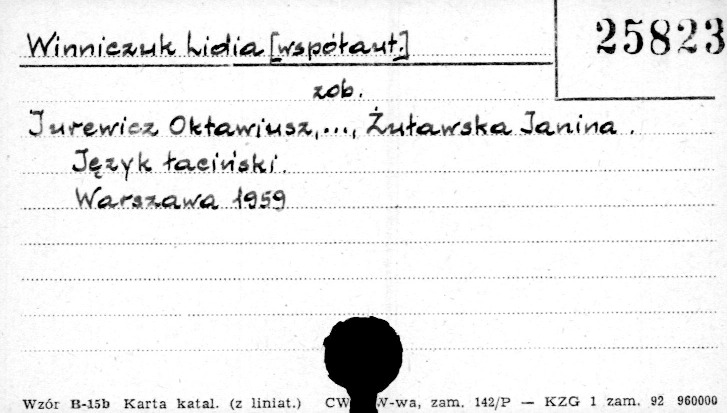 Winniczuk Lidia [współaut.]
25823
zob.
Jurewicz Oktawiusz,..., Żuławska Janina.
Język łaciński.
Warszawa 1959
Wzór B-15b Karta katal. (z liniat.) CW W-wa, zam. 142/P — KZG 1 zam. 92 960000